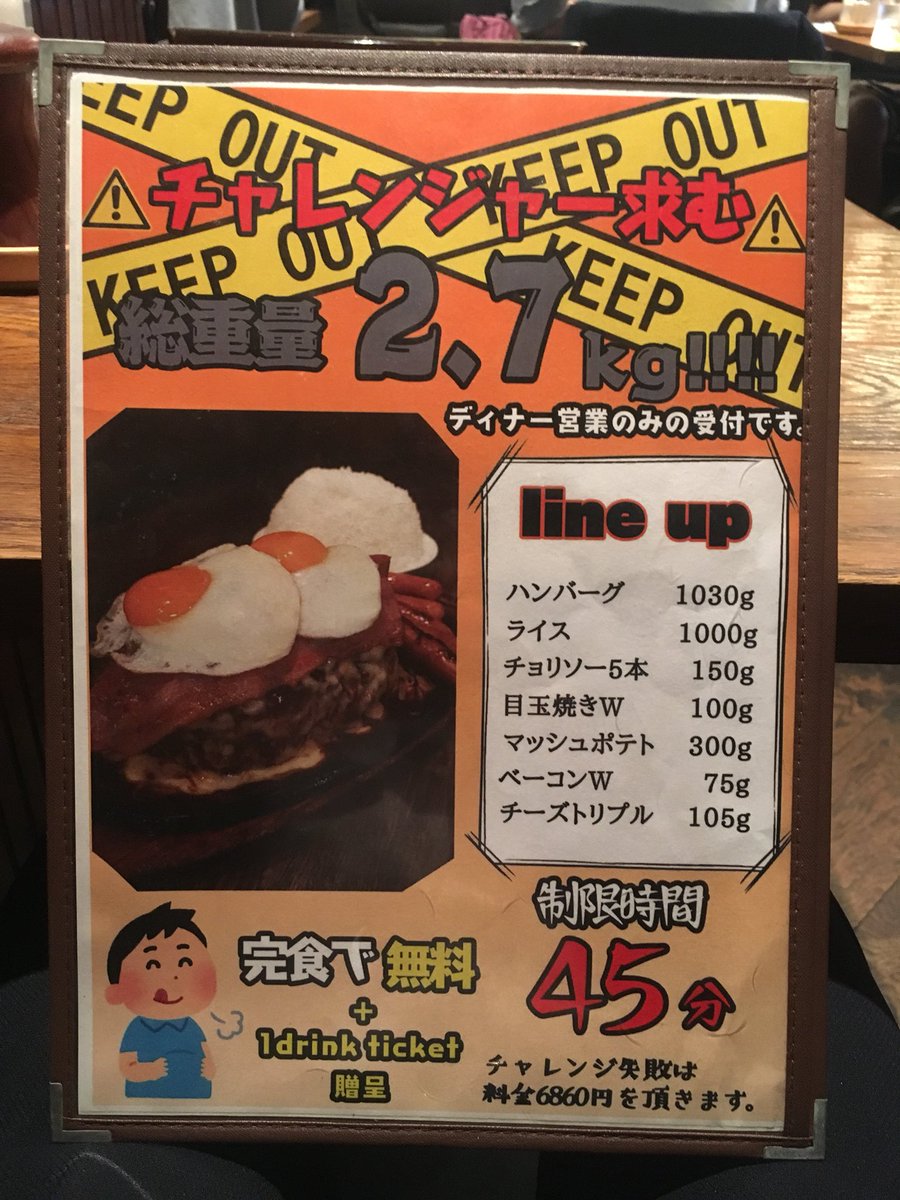 EEP OUT KEEP OUT
チャレンジャー求む
KEEP OUT KEEP OUT
総重量 2.7kg!!!!
ディナー営業のみの受付です。
line up
ハンバーグ 1030g
ライス 1000g
チョリソー5本 150g
目玉焼きW 100g
マッシュポテト 300g
ベーコンW 75g
チーズトリプル 105g
制限時間
45分
完食で無料
+
1drink ticket
贈呈
チャレンジ失敗は
料金6860円を頂きます。